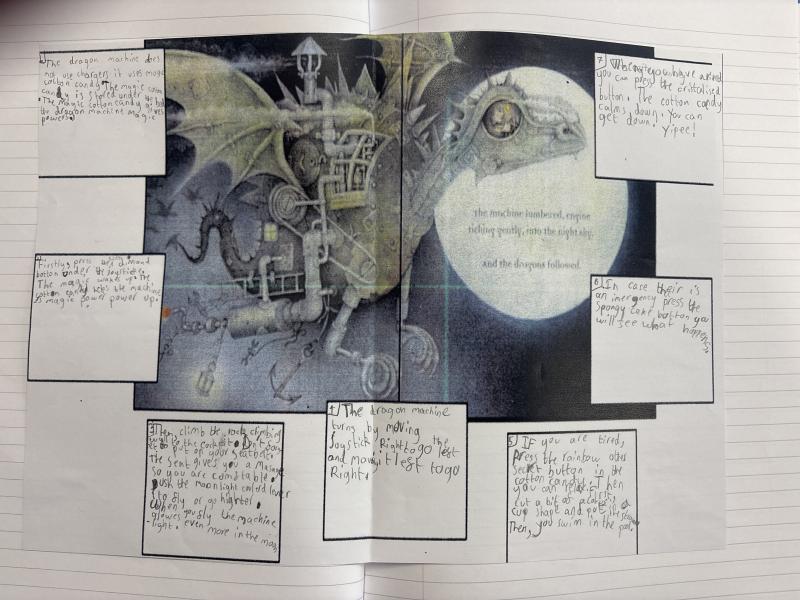 1) The dragon machine does
not use chargers it uses magic
cotton candy. The magic cotton
candy is stored under the
. The magic cotton candy gives
the dragon machine magic
powers.
2)
Firstly, press the dimand
botton under the joystick.
The magic
cotton helps the machine
magic power power up.
3) Then, climb the rock climbing
wall to the cockpit. Don't
to put on your seatbelt.
The seat gives you a masage
so you are comftable.
push the moonlight lever
to fly or go highter.
When you fly the machine
glowes even more in the moon
-light.
4) The dragon machine
turns by moving the
joystick Right to go left
and moving it left to go
Right.
5) If you are tired,
Press the rainbow
Secret button in the
cotton candy. Then
you can relax. First,
cut a bit of a
cup shape and put
Then, you swim in the pool.
6) In case their is
an inergency press the
spongy cake button you
will see what happens.
7) When
you can press the cristalised
button. The cotton candy
calms down. You can
get down. Yipee!
The machine lumbered, engine
ticking gently, into the night sky,
and the dragons followed.